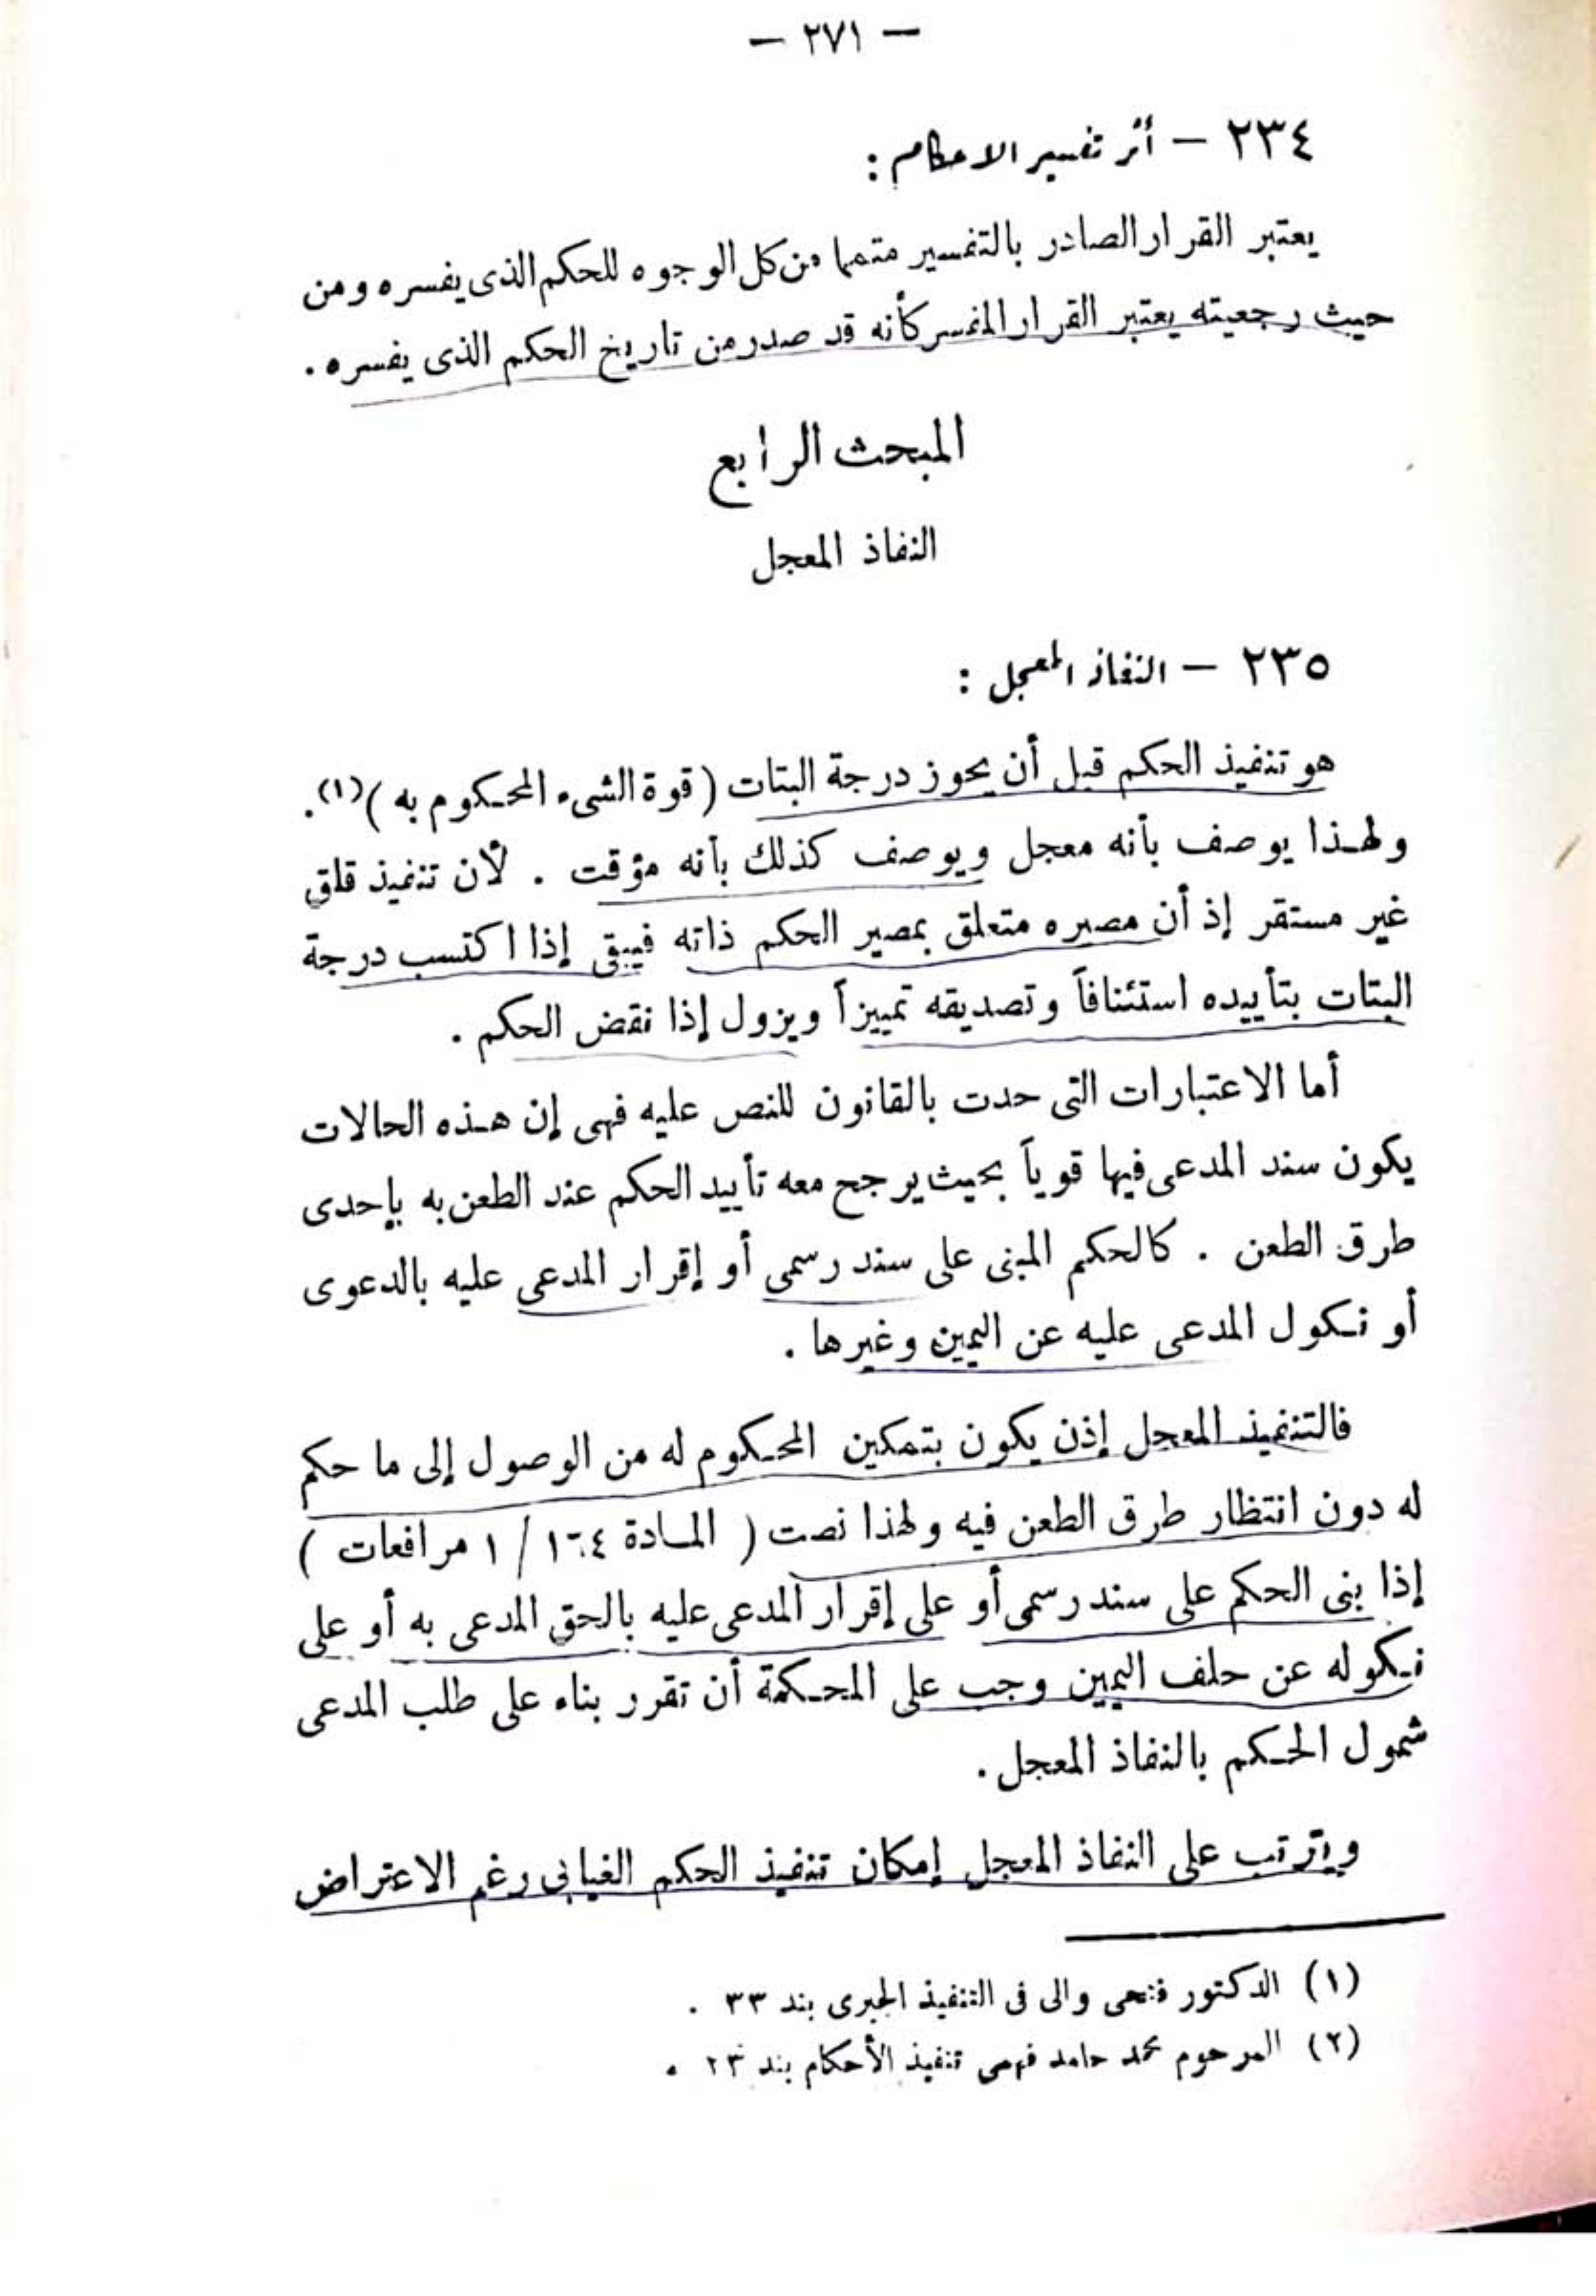 — ٢٧١ —
٢٣٤ — أثر تفسير الاحكام :
يعتبر القرار الصادر بالتفسير متمما من كل الوجوه للحكم الذى يفسره ومن
حيث رجعيته يعتبر القرار المفسر كأنه قد صدر من تاريخ الحكم الذى يفسره .
المبحث الرابع
النفاذ المعجل
٢٣٥ — النفاذ المعجل :
هو تنفيذ الحكم قبل أن يحوز درجة البتات ( قوة الشىء المحكوم به )(١).
ولهذا يوصف بأنه معجل ويوصف كذلك بأنه مؤقت . لأن تنفيذ قلق
غير مستقر إذ أن مصيره متعلق بمصير الحكم ذاته فيبقى إذا اكتسب درجة
البتات بتأييده استئنافاً وتصديقه تمييزاً ويزول إذا نقض الحكم .
أما الاعتبارات التى حدت بالقانون للنص عليه فهى إن هذه الحالات
يكون سند المدعى فيها قوياً بحيث يرجح معه تأييد الحكم عند الطعن به بإحدى
طرق الطعن . كالحكم المبنى على سند رسمى أو إقرار المدعى عليه بالدعوى
أو نكول المدعى عليه عن اليمين وغيرها .
فالتنفيذ المعجل إذن يكون بتمكين المحكوم له من الوصول إلى ما حكم
له دون انتظار طرق الطعن فيه ولهذا نصت ( المادة ١٦٤ / ١ مرافعات )
إذا بنى الحكم على سند رسمى أو على إقرار المدعى عليه بالحق المدعى به أو على
نكوله عن حلف اليمين وجب على المحكمة أن تقرر بناء على طلب المدعى
شمول الحكم بالنفاذ المعجل .
ويترتب على النفاذ المعجل إمكان تنفيذ الحكم الغيابى رغم الاعتراض
(١) الدكتور فتحى والى فى التنفيذ الجبرى بند ٣٣ .
(٢) المرحوم محمد حامد فهمى تنفيذ الأحكام بند ٢٣ .